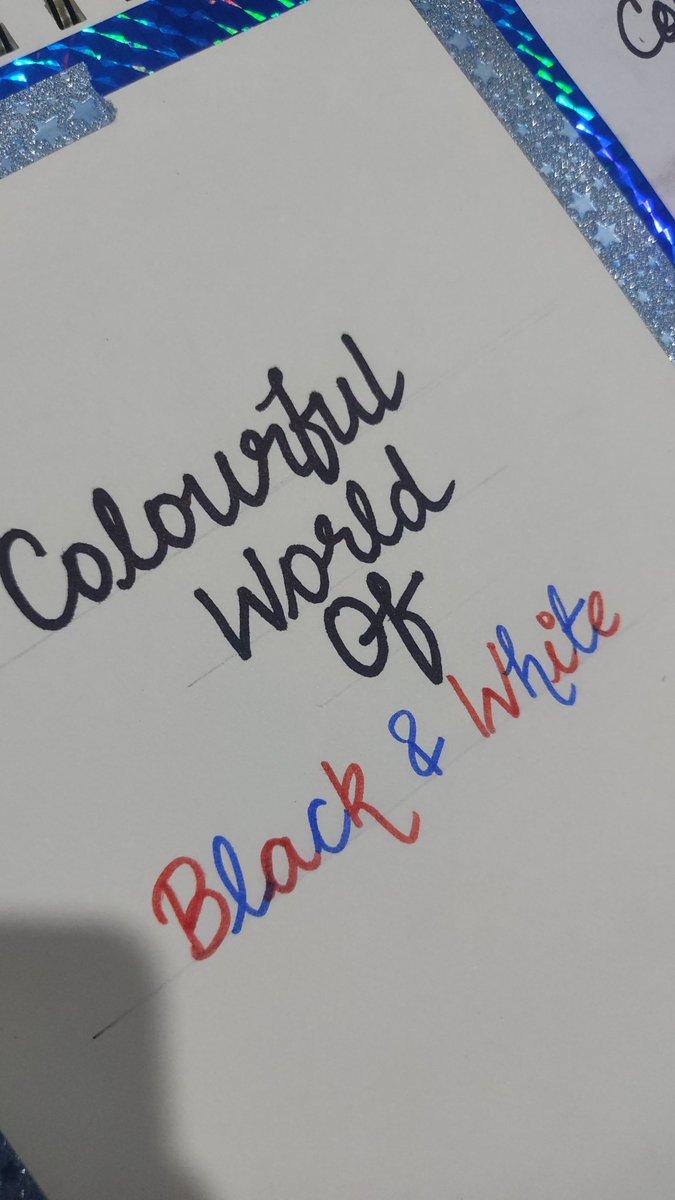 Colourful
World
Of
Black & White